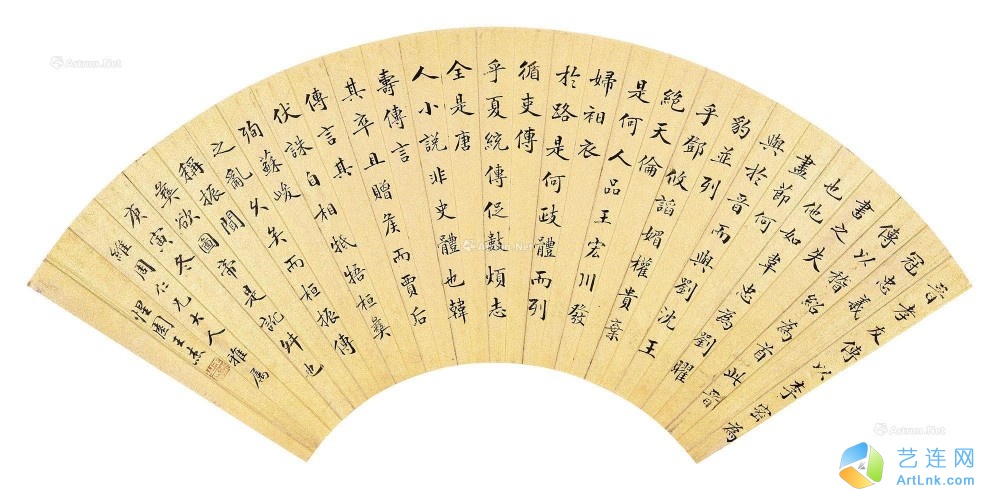 晉孝友傳以李密為
冠忠義
傳以嵇紹為首此晉
書之失
也他如韋忠為劉曜
盡節何
與於晉而與劉沈王
豹並列
乎鄧攸諂媚權貴棄
絕天倫
是何人品王宏川發
婦衵衣
於路是何政體而列
循吏傳
乎夏統傳促鼓煩志
全是唐
人小說非史體也韓
壽傳言
其卒且贈矣而賈后
傳言其
伏誅自相牴牾桓彝
殉蘇峻
之亂久矣而桓振傳
稱振間
彝欲圖帝是訛舛也
庚寅冬
維周仁兄大人雅屬
惺園王杰
Artron.Net
Artron.Net
Artron.Net
艺连网
ArtLnk.com